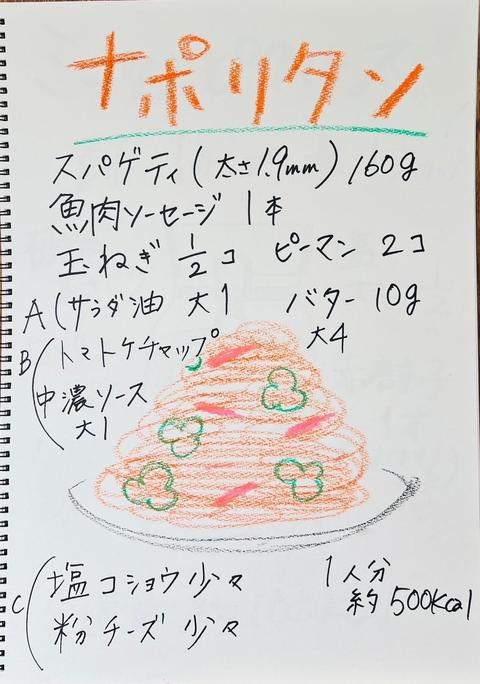 ナポリタン
スパゲティ(太さ1.9mm) 160g
魚肉ソーセージ 1本
玉ねぎ 1/2コ ピーマン 2コ
A(サラダ油 大1 バター 10g
B(トマトケチャップ 大4
中濃ソース
大1
C(塩コショウ少々
粉チーズ少々
1人分
約500Kcal